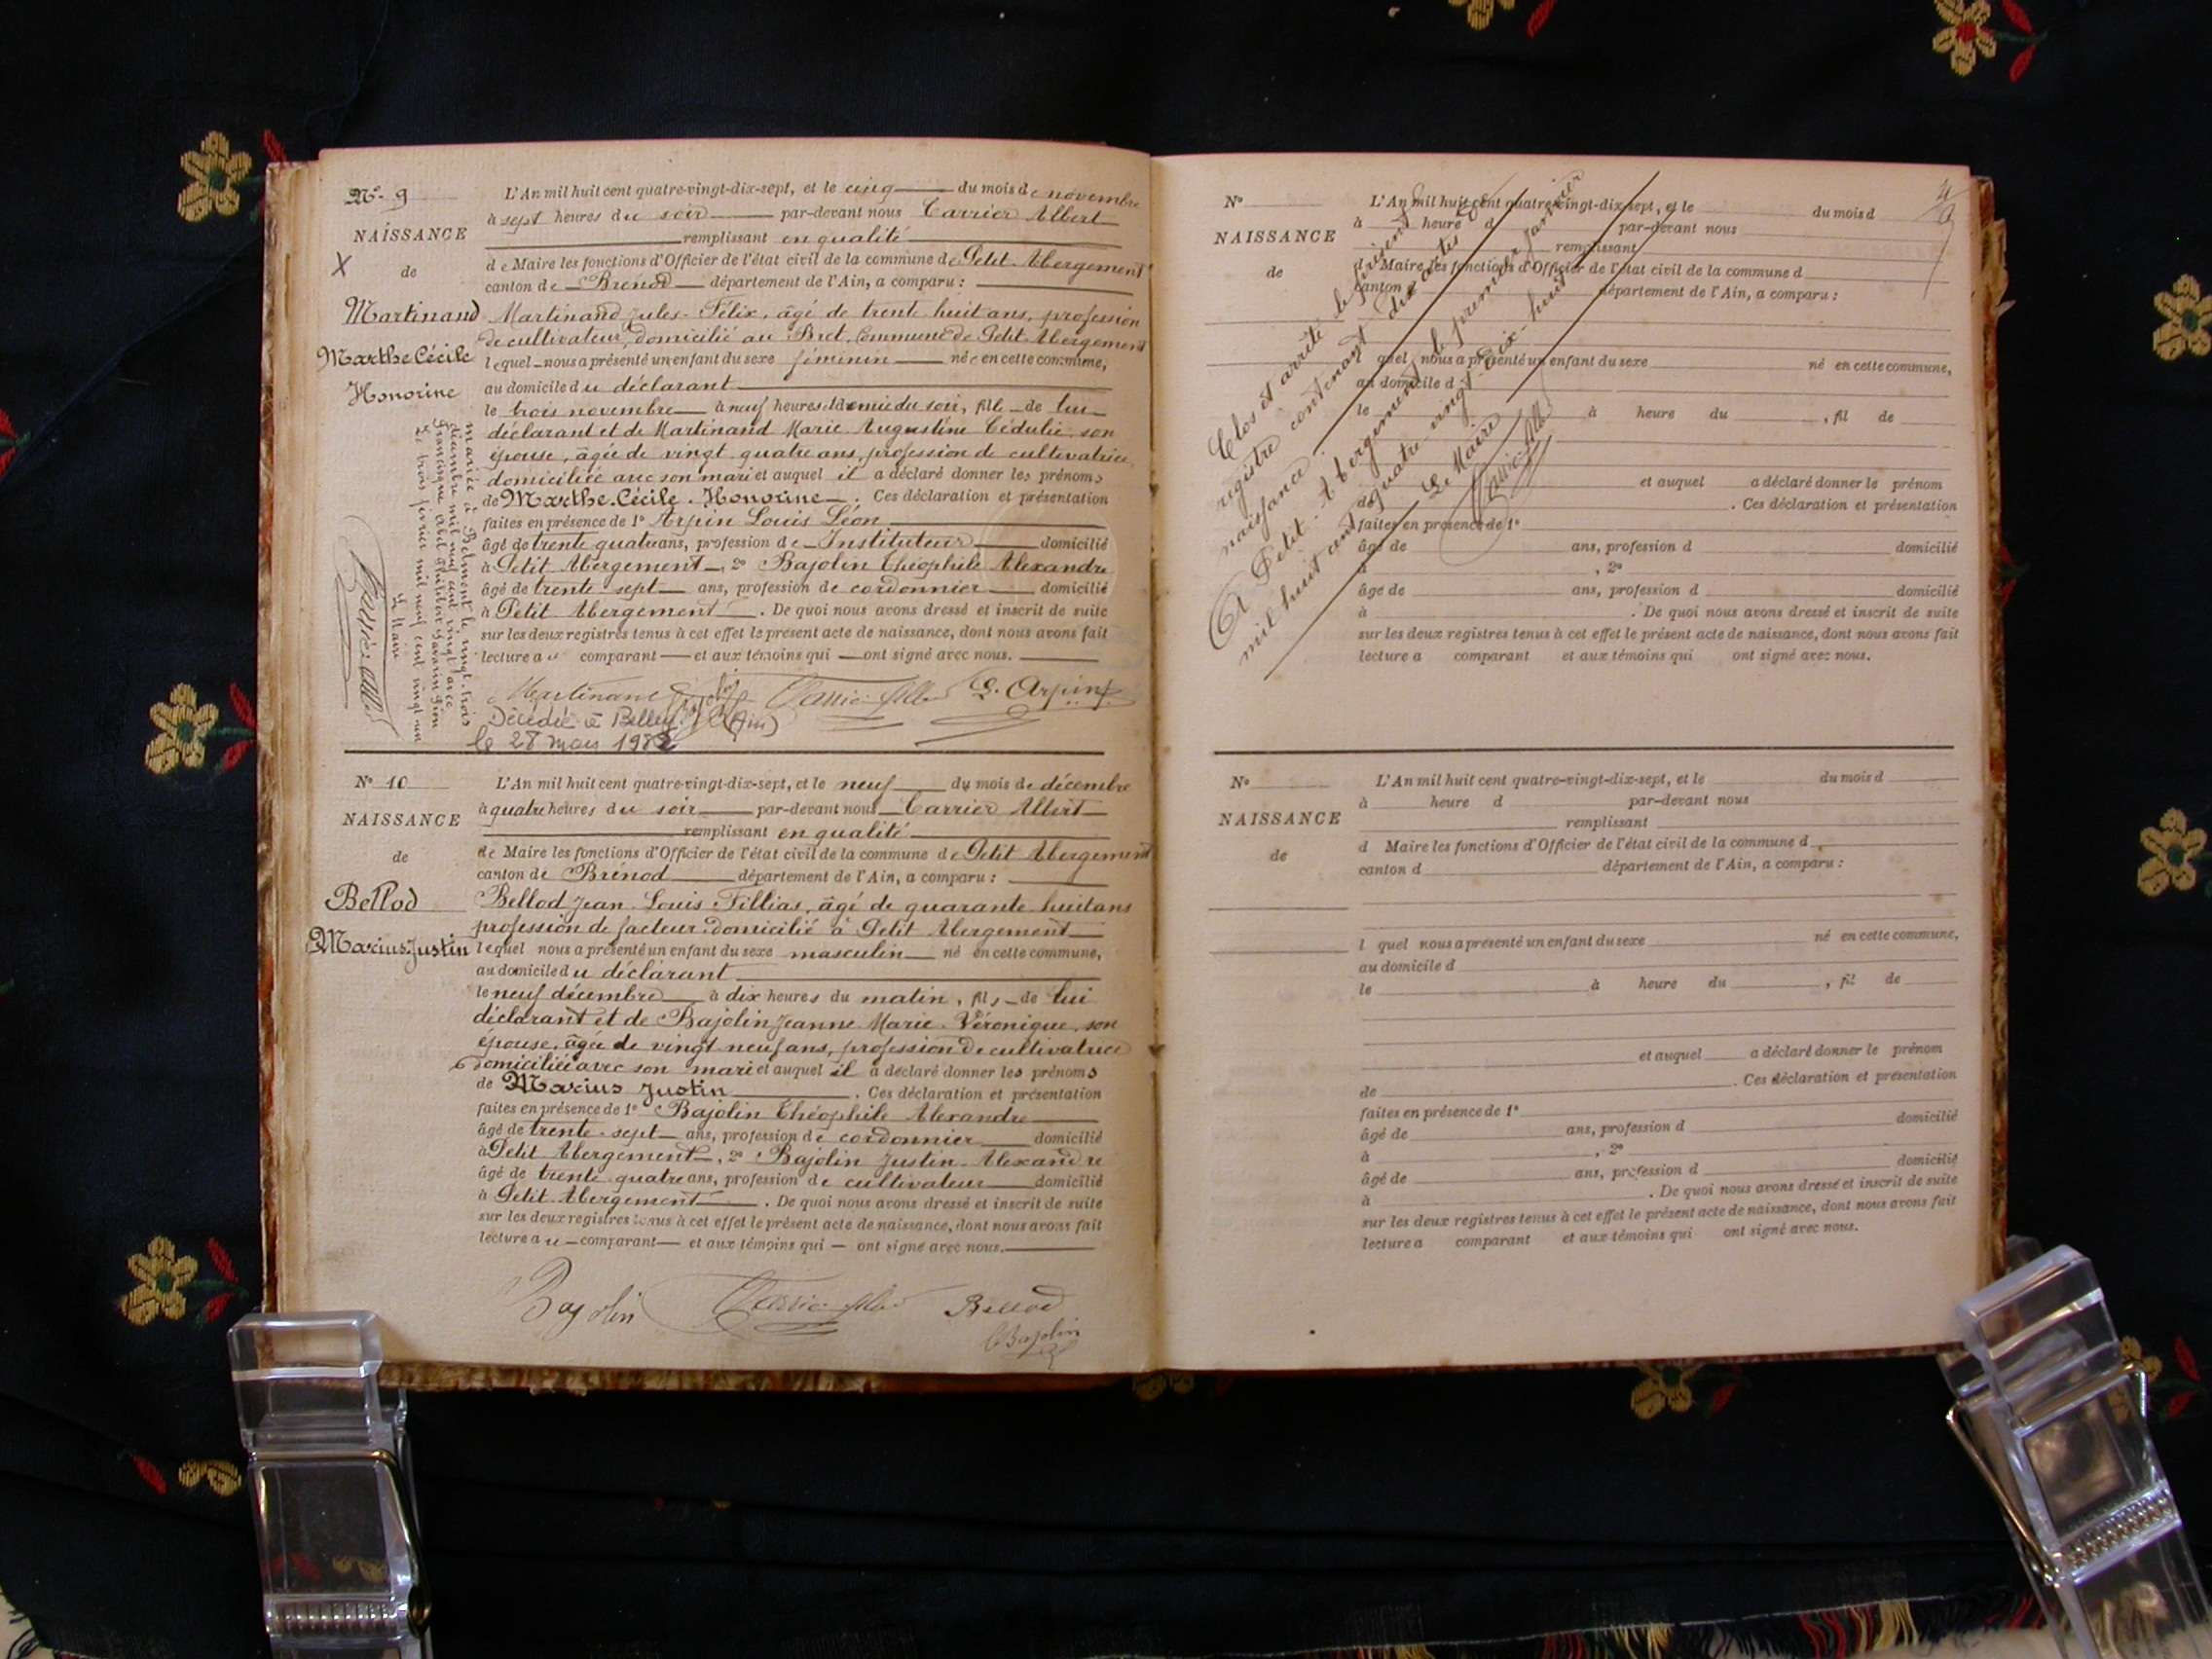 N° 9
NAISSANCE
de
Martinand
Marthe Cécile
Honorine
X
L'An mil huit cent quatre-vingt-dix-sept, et le cinq du mois de novembre
à sept heures du soir par-devant nous Carrier Albert
remplissant en qualité
de Maire les fonctions d'Officier de l'état civil de la commune de Petit Abergement
canton de Brénod département de l'Ain, a comparu :
Martinand Jules Félix, âgé de trente huit ans, profession
de cultivateur, domicilié au Bret, Commune de Petit Abergement
lequel nous a présenté un enfant du sexe féminin née en cette commune,
au domicile du déclarant
le trois novembre à neuf heures et demie du soir, fille de lui
déclarant et de Martinand Marie Augustine Cédulie son
épouse, âgée de vingt quatre ans, profession de cultivatrice
domiciliée avec son mari et auquel il a déclaré donner les prénoms
de Marthe Cécile Honorine. Ces déclaration et présentation
faites en présence de 1° Arpin Louis Léon
âgé de trente quatre ans, profession de Instituteur domicilié
à Petit Abergement, 2° Bajolin Théophile Alexandre
âgé de trente sept ans, profession de cordonnier domicilié
à Petit Abergement. De quoi nous avons dressé et inscrit de suite
sur les deux registres tenus à cet effet le présent acte de naissance, dont nous avons fait
lecture au comparant et aux témoins qui ont signé avec nous.
Mariée à Belmont le vingt-trois
décembre mil neuf cent vingt avec
Le trois février mil neuf cent vingt un
Le Maire
Martinand Carrier Albert L. Arpin
Décédée à Belley (Ain)
le 28 mars 1982
N° 10
NAISSANCE
de
Bellod
Marius Justin
L'An mil huit cent quatre-vingt-dix-sept, et le neuf du mois de décembre
à quatre heures du soir par-devant nous Carrier Albert
remplissant en qualité
de Maire les fonctions d'Officier de l'état civil de la commune de Petit Abergement
canton de Brénod département de l'Ain, a comparu :
Bellod Jean Louis Fillias, âgé de quarante huit ans
profession de facteur domicilié à Petit Abergement
lequel nous a présenté un enfant du sexe masculin né en cette commune,
au domicile du déclarant
le neuf décembre à dix heures du matin, fils de lui
déclarant et de Bajolin Jeanne Marie Véronique, son
épouse, âgée de vingt neuf ans, profession de cultivatrice
domiciliée avec son mari et auquel il a déclaré donner les prénoms
de Marius Justin. Ces déclaration et présentation
faites en présence de 1° Bajolin Théophile Alexandre
âgé de trente sept ans, profession de cordonnier domicilié
à Petit Abergement, 2° Bajolin Justin Alexandre
âgé de trente quatre ans, profession de cultivateur domicilié
à Petit Abergement. De quoi nous avons dressé et inscrit de suite
sur les deux registres tenus à cet effet le présent acte de naissance, dont nous avons fait
lecture au comparant et aux témoins qui ont signé avec nous.
Bajolin Carrier Albert Bellod
Bajolin
N°
NAISSANCE
de
L'An mil huit cent quatre-vingt-dix-sept, et le du mois d
à heure d par-devant nous
remplissant
d Maire les fonctions d'Officier de l'état civil de la commune d
canton d département de l'Ain, a comparu :
quel nous a présenté un enfant du sexe né en cette commune,
au domicile d
le à heure du , fil de
et auquel a déclaré donner le prénom
de . Ces déclaration et présentation
faites en présence de 1°
âgé de ans, profession d domicilié
à , 2°
âgé de ans, profession d domicilié
à . De quoi nous avons dressé et inscrit de suite
sur les deux registres tenus à cet effet le présent acte de naissance, dont nous avons fait
lecture a comparant et aux témoins qui ont signé avec nous.
Clos et arrêté le présent
registre contenant dix actes de
naissance
A Petit-Abergement le premier janvier
mil huit cent quatre-vingt-dix-huit
Le Maire
N°
NAISSANCE
de
L'An mil huit cent quatre-vingt-dix-sept, et le du mois d
à heure d par-devant nous
remplissant
d Maire les fonctions d'Officier de l'état civil de la commune d
canton d département de l'Ain, a comparu :
l quel nous a présenté un enfant du sexe né en cette commune,
au domicile d
le à heure du , fil de
et auquel a déclaré donner le prénom
de . Ces déclaration et présentation
faites en présence de 1°
âgé de ans, profession d domicilié
à , 2°
âgé de ans, profession d domicilié
à . De quoi nous avons dressé et inscrit de suite
sur les deux registres tenus à cet effet le présent acte de naissance, dont nous avons fait
lecture a comparant et aux témoins qui ont signé avec nous.